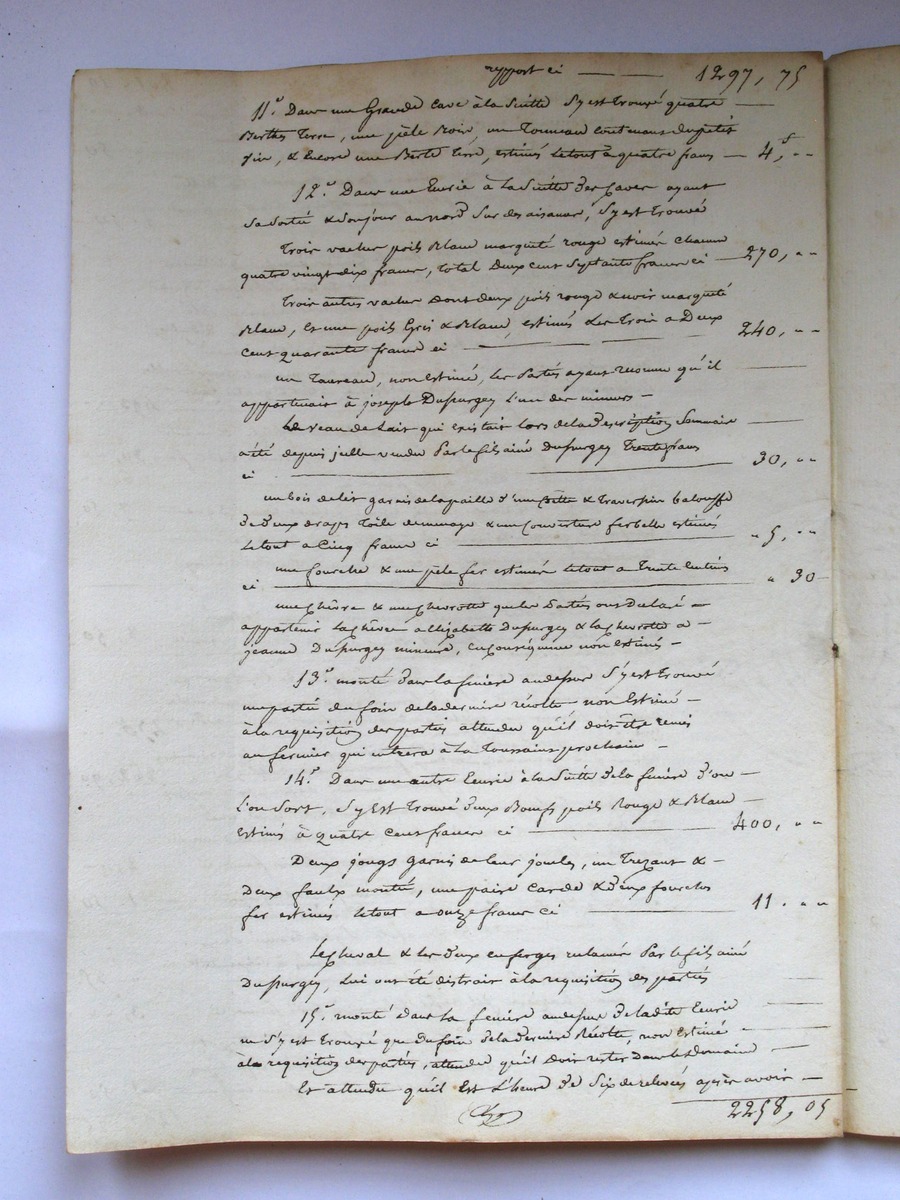 rapport ci — — 1297, 75
11°. Dans une Grande Cave à la suitte s'y est trouvé quatre —
Bertes terre, une poële noir, un Tonneau contenant du petit
vin, & encore une Berte terre, estimés le tout à quatre francs — 4,f „ „
12°. Dans une Eurie à la suitte des caves ayant
sa sortie & son jour au nord sur des aisances, s'y est trouvé
Trois vaches poils blanc marqueté rouge estimée chacune
quatre vingt dix francs, total Deux cent septante francs ci — 270, „ „
Trois autres vaches dont deux poils rouge & noir marqueté
Blanc, et une poils Gris & Blanc, estimés les trois a Deux
cent quarante francs ci — 240, „ „
un Taureau, non estimé, les Parties ayant reconnu qu'il —
appartenait à joseph Dupurgey l'un des mineurs —
Le veau de lait qui existait lors de la description sommaire —
a été depuis jcelle vendu Par le fils ainé Dupurgey Trente francs
ci — 30, „ „
un bois de lit garni de la paille d'une & traversin balouffe
de deux draps toile de menage & une couverture estimés
le tout a Cinq francs ci — „ 5, „ „
une fourche & une pele fer estimée le tout a trente centimes
ci — „ 30
une chèvre & une chevrotte que les Parties ont déclaré —
appartenir la chèvre a Elizabette Dupurgey & la chevrotte a —
jeanne Dupurgey mineure, en conséquence non estimés —
13°. monté dans la finière au dessus s'y est trouvé
une partie du foin de la dernière récolte non Estimé —
à la requisition des parties attendu qu'il doit être remis
au fermier qui entrera à la Toussaint prochain —
14°. Dans une autre Eurie à la suitte de la finière d'ou —
l'on sort, s'y est trouvé deux Bœufs poils rouge & Blanc —
estimés à quatre cent francs ci — 400, „ „
Deux jougs garnis de leur joucles, un Trezant & —
Deux faulx montée, une paire carde & deux fourches
fer estimés le tout a onze francs ci — 11. „ „
Le cheval & les deux reclamés Par le fils ainé
Dupurgey, lui ont été distrait à la requisition des parties —
15°. monté dans la feniére au dessus de la dite Eurie —
ne s'y est trouvé que du foin de la dernière Récolte, non estimé —
à la requisition des parties, attendu qu'il doit rester dans le domaine —
Et attendu qu'il est l'heure de six de relevées après avoir —
2258, 05